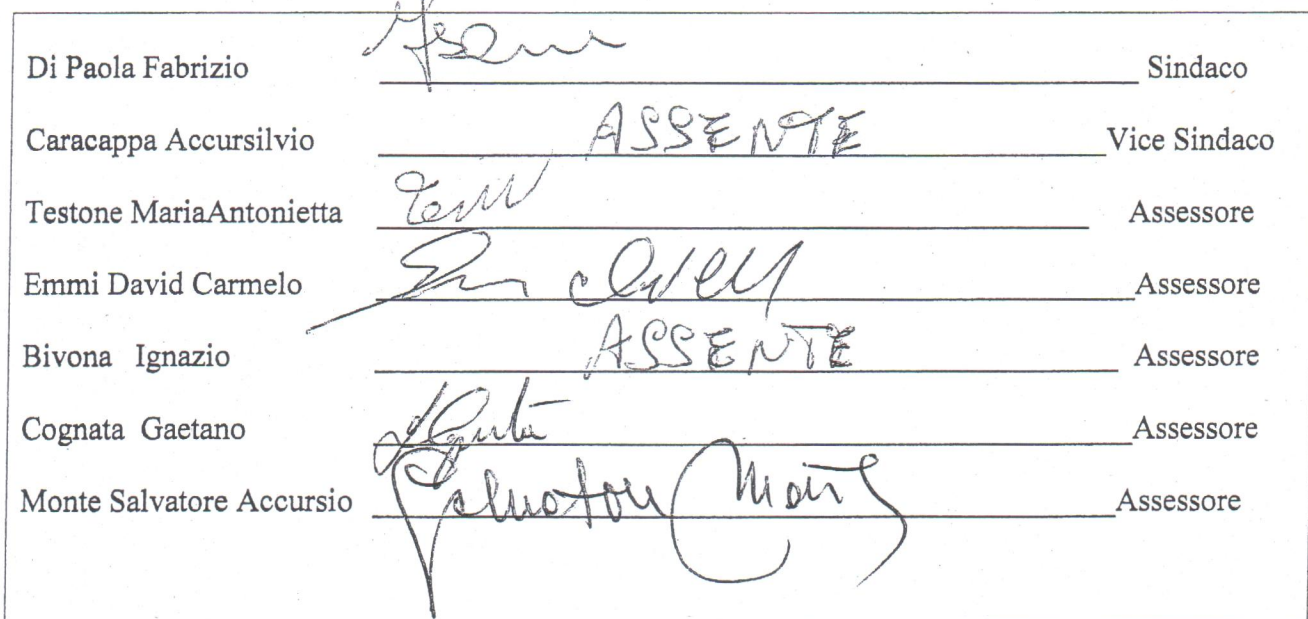 Di Paola Fabrizio Sindaco
Caracappa Accursilvio ASSENTE Vice Sindaco
Testone MariaAntonietta Assessore
Emmi David Carmelo Assessore
Bivona Ignazio ASSENTE Assessore
Cognata Gaetano Assessore
Monte Salvatore Accursio Salvatore Assessore